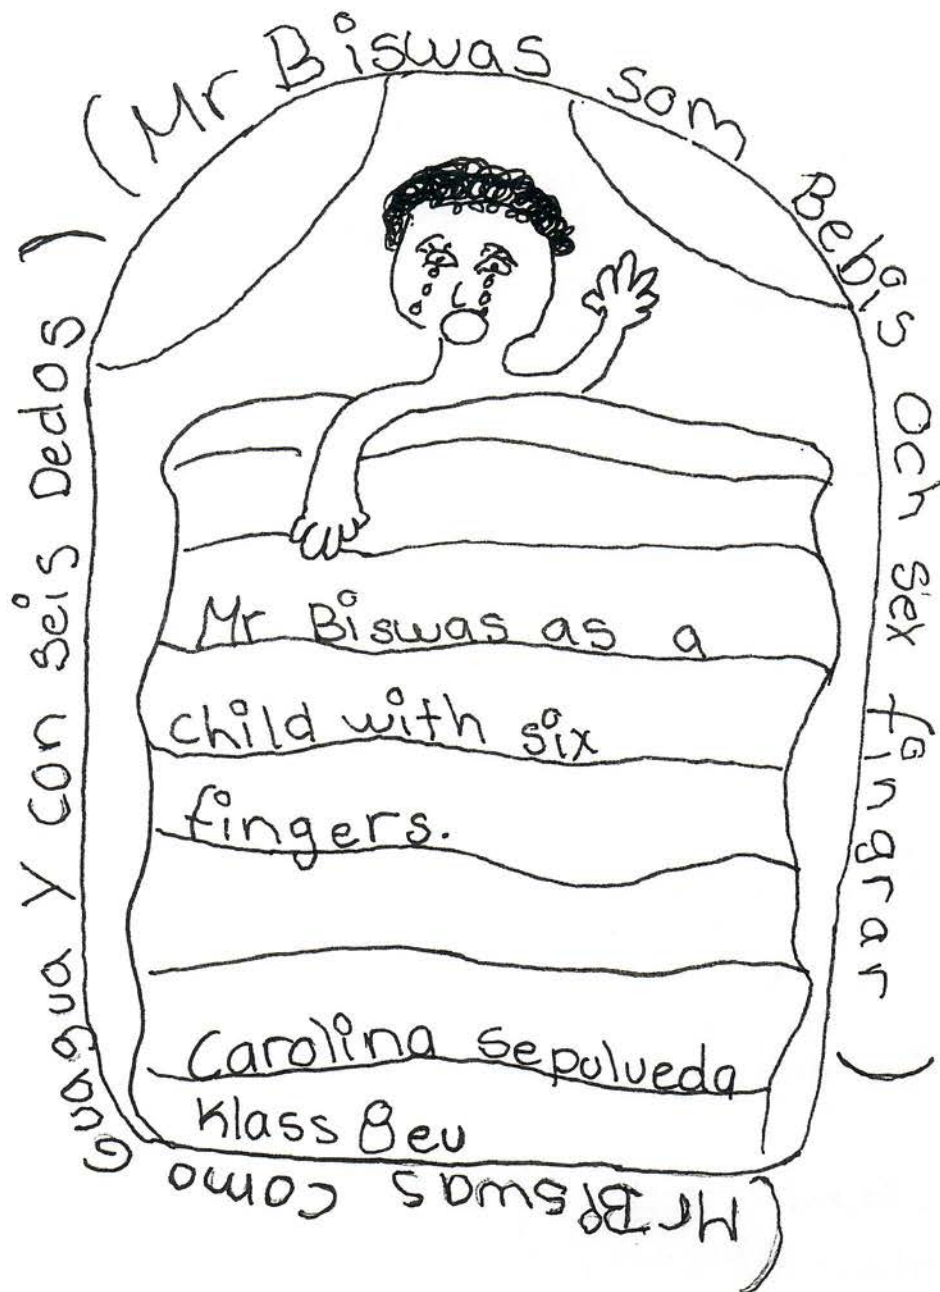 (Mr Biswas som Bebis Och sex fingrar)
Mr Biswas as a
child with six
fingers.
Carolina Sepulveda
Klass 8eu
(Mr Biswas como Guagua Y con Seis Dedos)